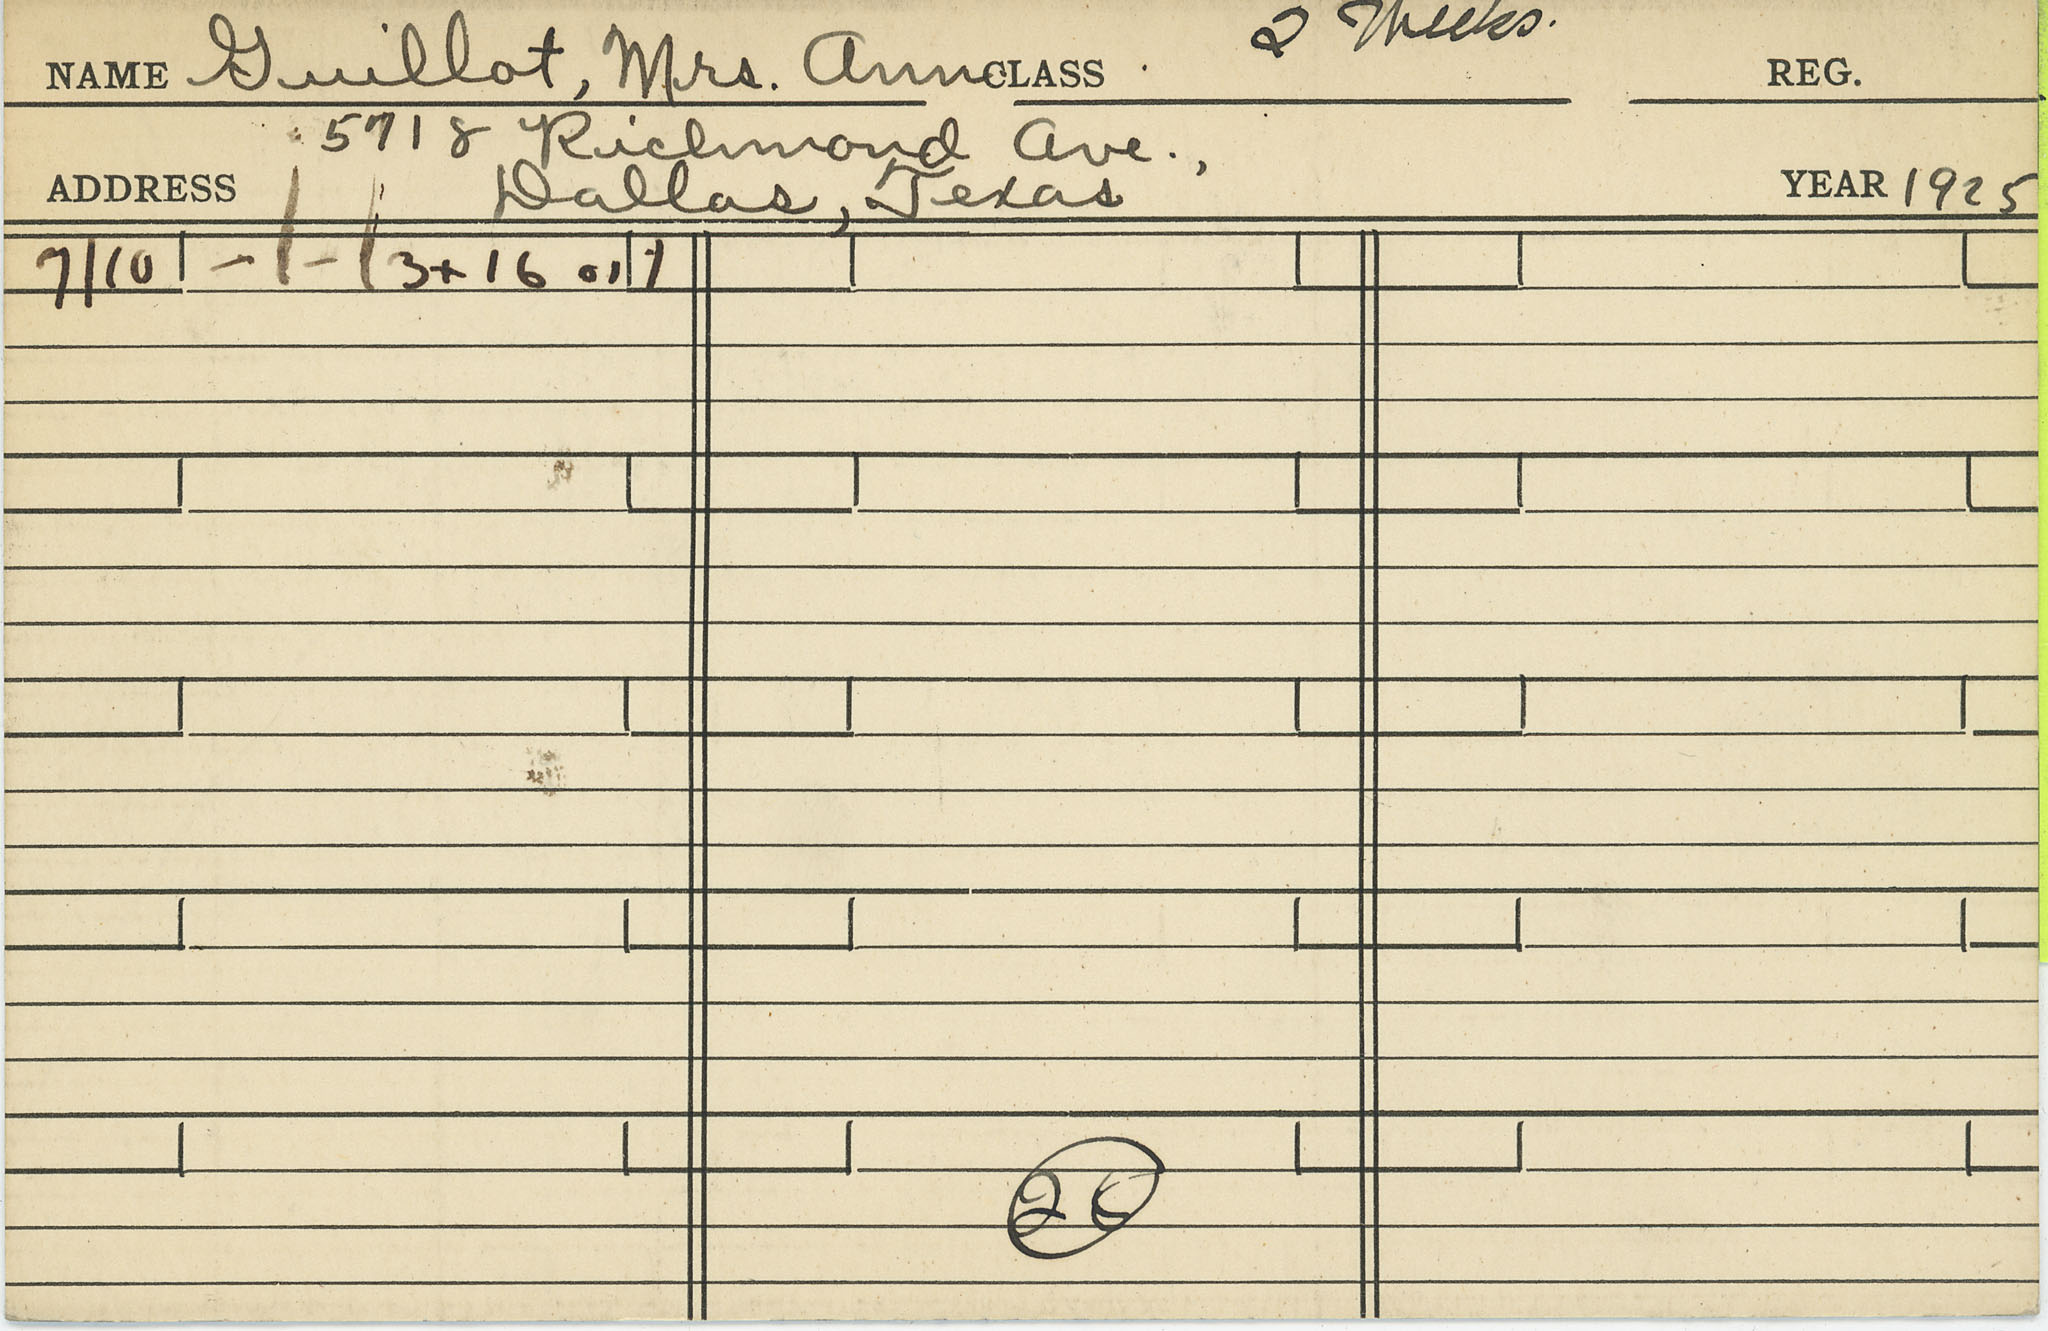 2 Weeks.
NAME Guillot, Mrs. Ann CLASS REG.
5718 Richmond Ave.,
ADDRESS Dallas, Texas YEAR 1925
7/10 3+16